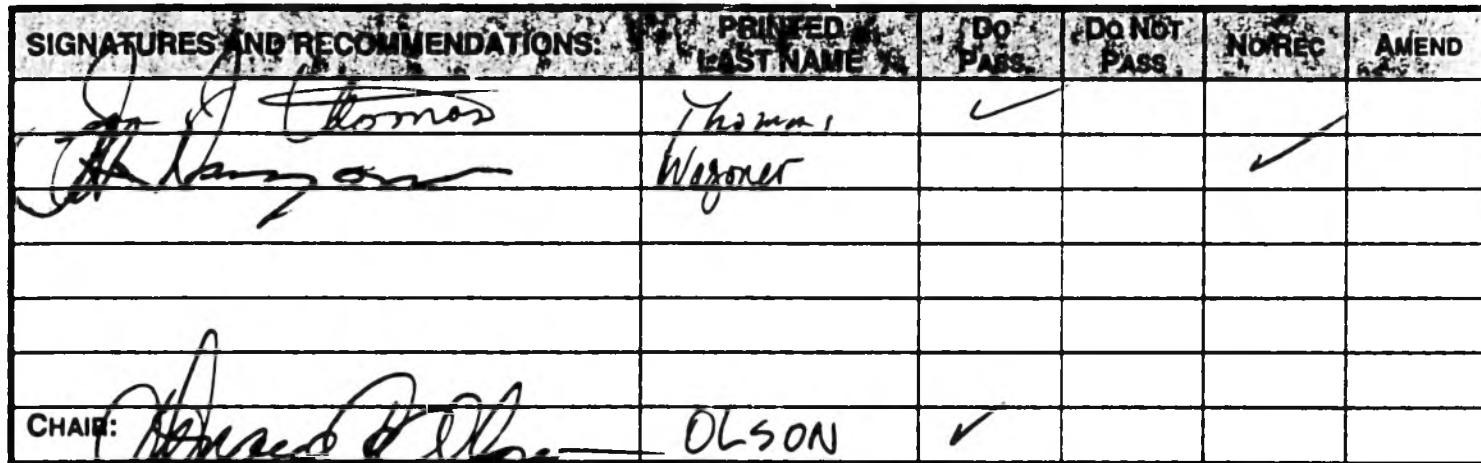 SIGNATURES AND RECOMMENDATIONS: PRINTED LAST NAME DO PASS DO NOT PASS NO REC AMEND
Thomas Thomas ✓
Wagoner ✓
CHAIR: OLSON ✓